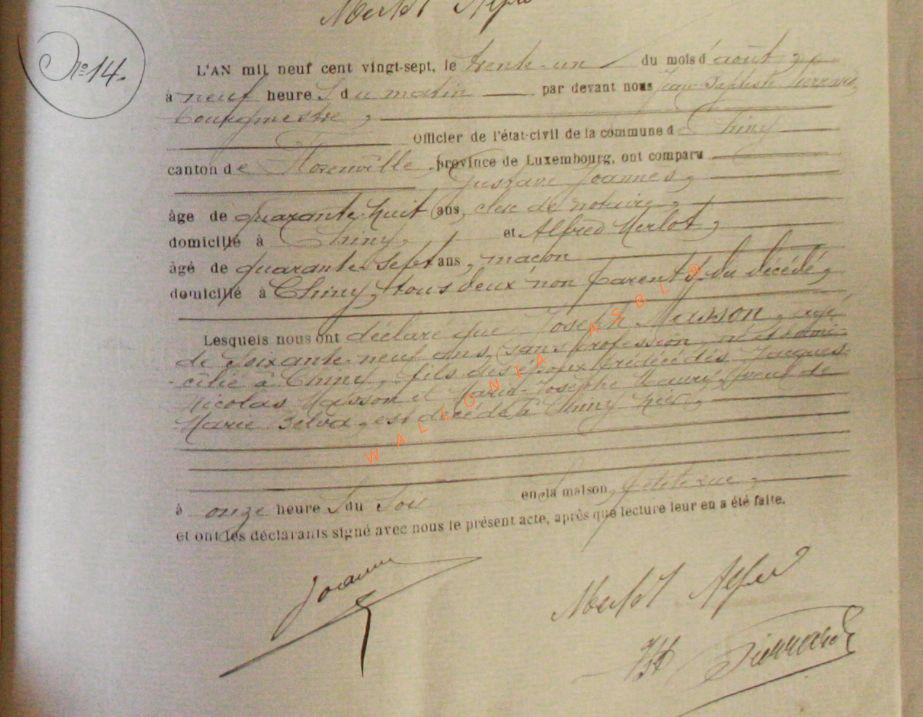 Merlot Alfred
N° 14.
L'AN mil neuf cent vingt-sept, le trente-un du mois d'août,
à neuf heure s du matin par devant nous Jean Baptiste Pierrard,
bourgmestre,
Officier de l'état-civil de la commune de Chiny
canton de Florenville, province de Luxembourg, ont comparu
Gustave Joannes,
âge de quarante-huit ans, clerc de notaire,
domicilié à Chiny, et Alfred Merlot,
âgé de quarante-sept ans, maçon
domicilié à Chiny, tous deux non parents du décédé,
Lesquels nous ont déclaré que Joseph Masson, âgé
de soixante-neuf ans, sans profession, né et domi-
cilié à Chiny, fils des époux prédécédés Jacques
Nicolas Masson et Marie Josèphe veuf de
Marie est décédé à Chiny hier,
à onze heure s du soir en la maison, petite rue,
et ont les déclarants signé avec nous le présent acte, après que lecture leur en a été faite.
Joannes
Merlot Alfred
JB Pierrard
WALLONIA ASBL